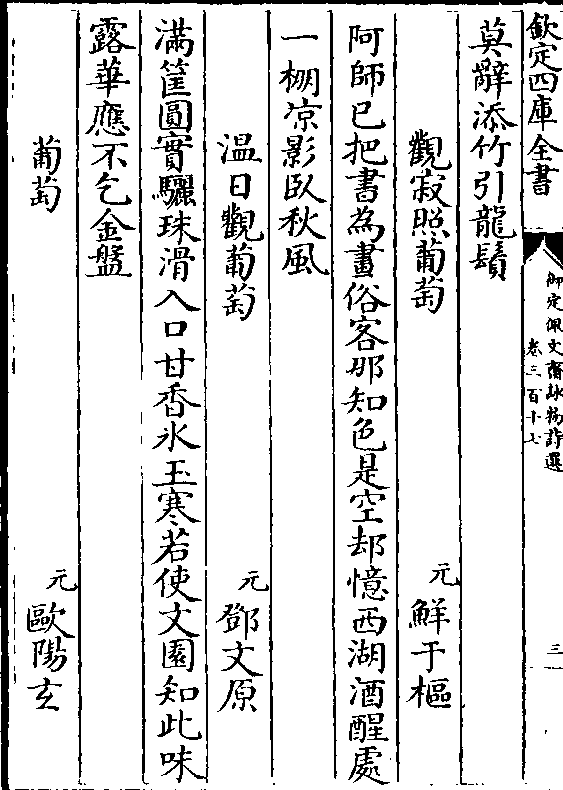 欽定四庫全書
御定佩文齋詠物詩選
卷三百十七
三
莫辭添竹引龍鬚
觀寂照葡萄
元
鮮于樞
阿師已把書為畫俗客那知色是空却憶西湖酒醒處
一棚凉影臥秋風
温日觀葡萄
元
鄧文原
滿筐圓實驪珠滑入口甘香氷玉寒若使文園知此味
露華應不乞金盤
葡萄
元
歐陽玄